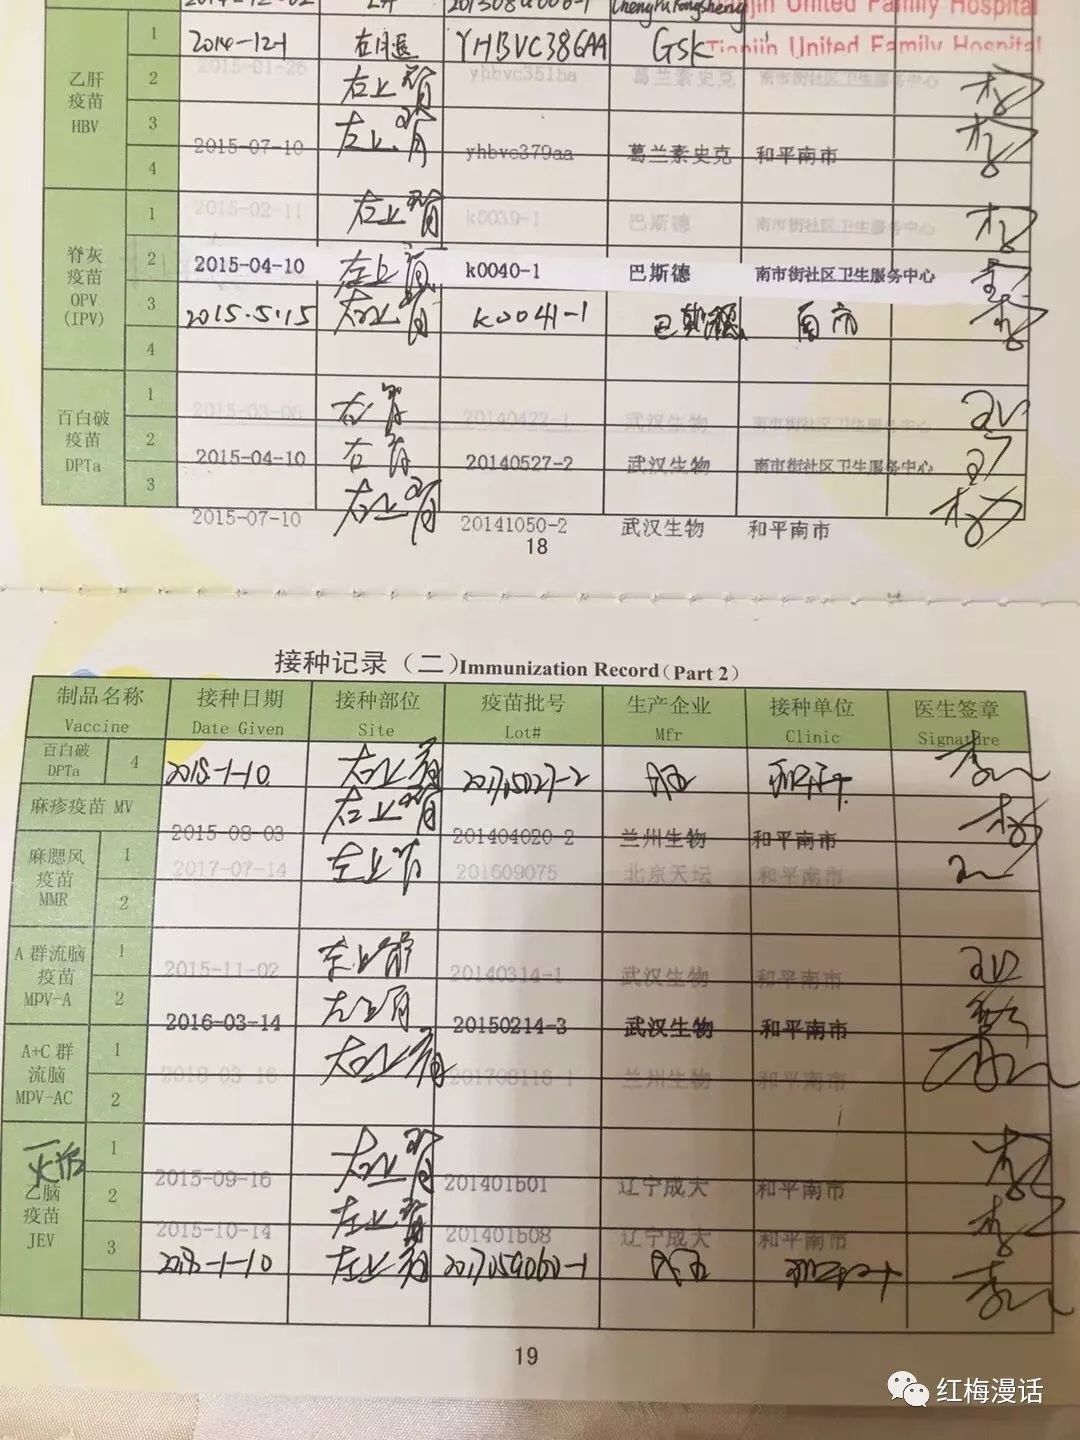 jin United Family Hospital
Tianjin United Family Hospital
乙肝
疫苗
HBV
1 2014-12-1 YHBVC386AA GSK
2 2015-01-26 左上臂 yhbvc351ba 葛兰素史克 南市街社区卫生服务中心
3 2015-07-10 左上臂 yhbvc379aa 葛兰素史克 和平南市
4
脊灰
疫苗
OPV
(IPV)
1 2015-02-11 左上臂 k0039-1 巴斯德 南市街社区卫生服务中心
2 2015-04-10 左上臂 k0040-1 巴斯德 南市街社区卫生服务中心
3 2015.5.15 右上臂 K0041-1 巴斯德 南市
4
百白破
疫苗
DPTa
1 2015-03-06 右臂 20140422-1 武汉生物 南市街社区卫生服务中心
2 2015-04-10 右臂 20140527-2 武汉生物 南市街社区卫生服务中心
3 2015-07-10 右上臂 20141050-2 武汉生物 和平南市
18
接种记录（二）Immunization Record（Part 2）
制品名称 接种日期 接种部位 疫苗批号 生产企业 接种单位 医生签章
Vaccine Date Given Site Lot# Mfr Clinic Signature
百白破
DPTa 4 2018-1-10 右上臂
麻疹疫苗 MV 2015-08-03 右上臂 201404020-2 兰州生物 和平南市
麻腮风
疫苗
MMR
1 2017-07-14 左上臂 201609075 北京天坛 和平南市
2
A 群流脑
疫苗
MPV-A
1 2015-11-02 左上臂 20140314-1 武汉生物 和平南市
2 2016-03-14 左上臂 20150214-3 武汉生物 和平南市
A+C 群
流脑
MPV-AC
1 2018-03-16 右上臂 201708116-1 兰州生物 和平南市
2
灭活
乙脑
疫苗
JEV
1 2015-09-16 右上臂 201401b01 辽宁成大 和平南市
2 2015-10-14 左上臂 201401b08 辽宁成大 和平南市
3 2018-1-10 左上臂
19
红梅漫话